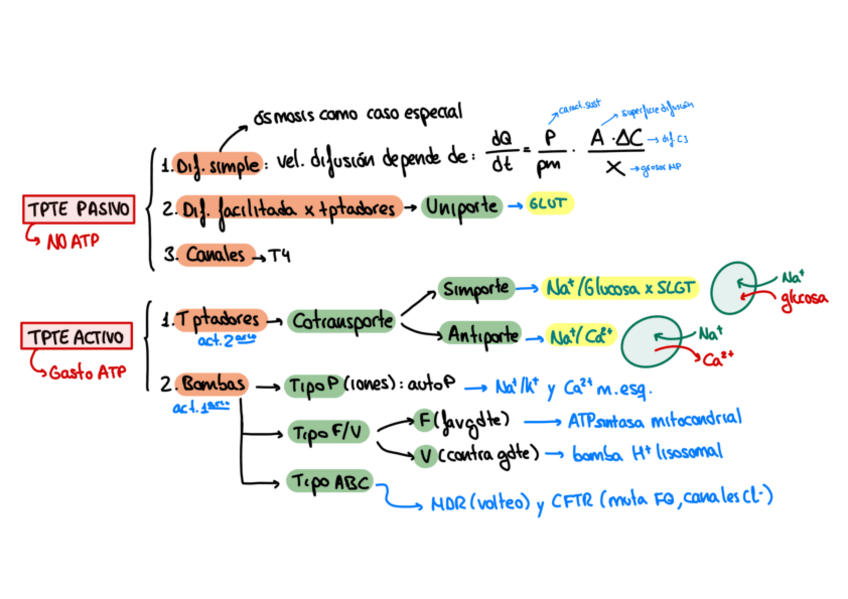 ósmosis como caso especial
caract. sust
superficie difusión
1. Dif. simple: vel. difusión depende de: dQ/dt = P/pm · A·ΔC/X
dif. C]
grosor MP
TPTE PASIVO
NO ATP
2. Dif. facilitada x tptadores → Uniporte → GLUT
3. Canales → T4
TPTE ACTIVO
Gasto ATP
1. Tptadores → Cotransporte
act. 2ario
Simporte → Na⁺/Glucosa x SLGT
Na⁺
glucosa
Antiporte → Na⁺/Ca²⁺
Na⁺
Ca²⁺
2. Bombas → Tipo P (iones): autoP → Na⁺/k⁺ y Ca²⁺ m. esq.
act. 1aria
Tipo F/V
F (fav gdte) → ATPsintasa mitocondrial
V (contra gdte) → bomba H⁺ lisosomal
Tipo ABC
MDR (volteo) y CFTR (muta FQ, canales Cl⁻)